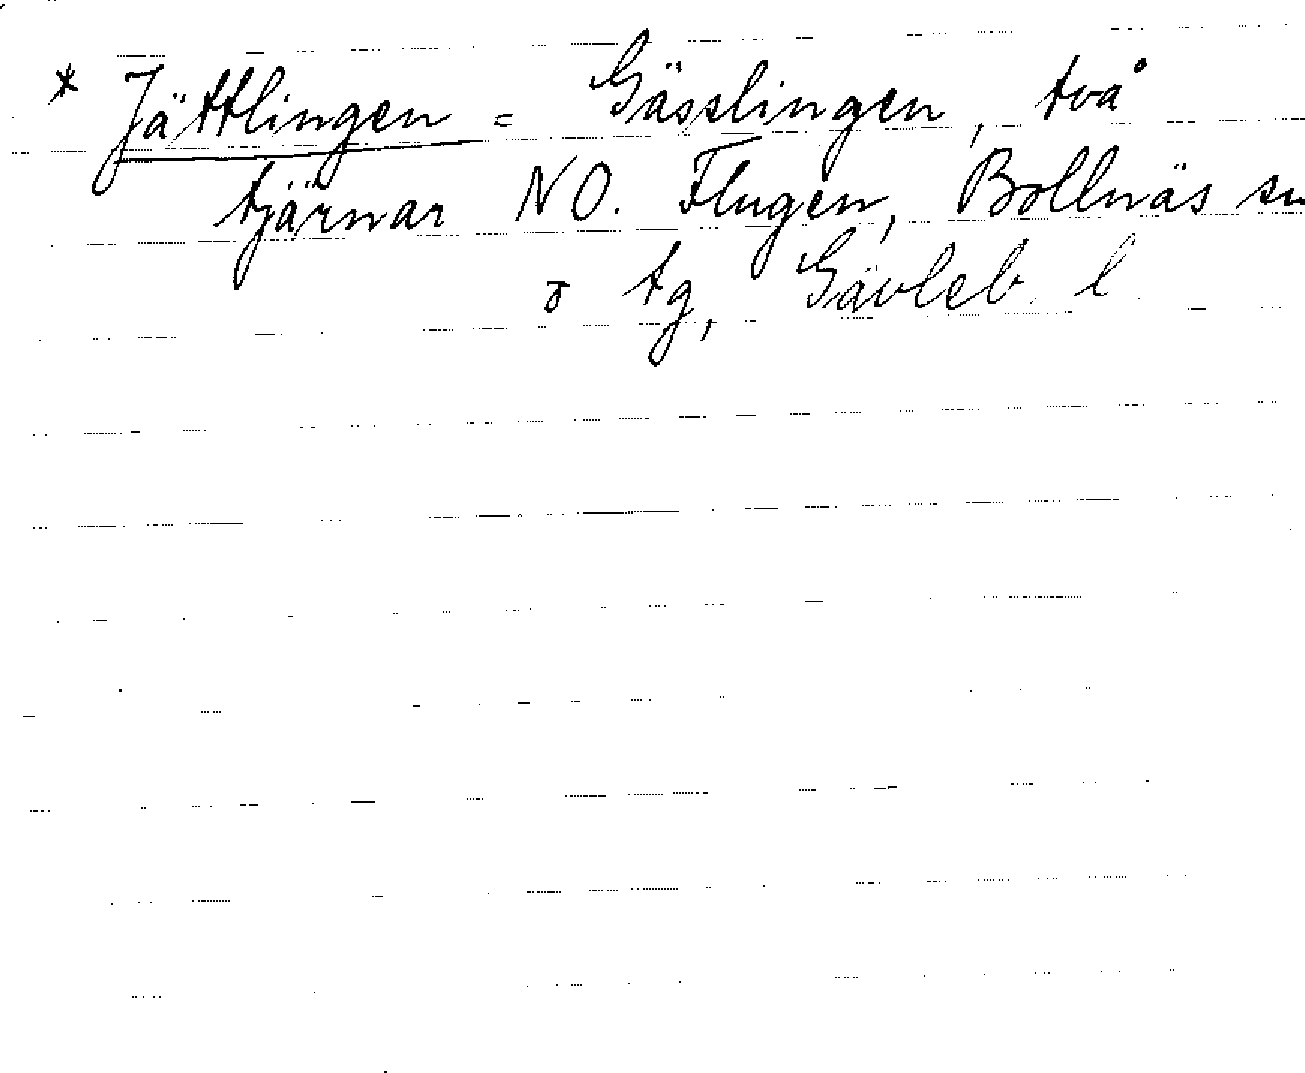 * Jättlingen = Gässlingen, två
tjärnar NO. Flugen, Bollnäs sn
o tg, Gävleb. l